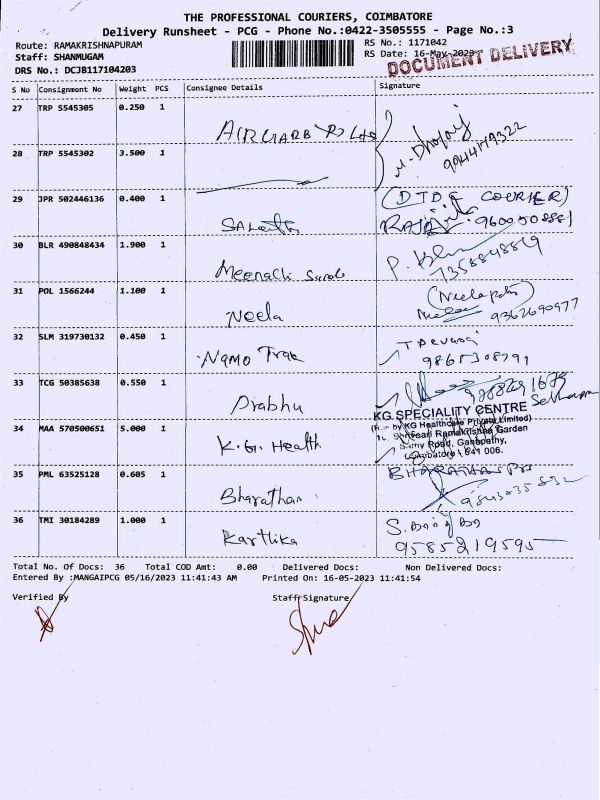 THE PROFESSIONAL COURIERS, COIMBATORE
Delivery Runsheet - PCG - Phone No.:0422-3505555 - Page No.:3
Route: RAMAKRISHNAPURAM RS No.: 1171042
Staff: SHANMUGAM RS Date: 16-May-2023
DOCUMENT DELIVERY
DRS No.: DCJB117104203
S No Consignment No Weight PCS Consignee Details Signature
27 TRP 5545305 0.250 1
28 TRP 5545302 3.500 1
9944119322
29 JPR 502446136 0.400 1 (DTDC COURIER)
30 BLR 490848434 1.900 1 Meenachi
31 POL 1566244 1.100 1 Neela
9362690977
32 SLM 319730132 0.450 1 Namo
9865308791
33 TCG 50385638 0.550 1 Prabhu
KG SPECIALITY CENTRE
(Run by KG Healthcare Private Limited)
Ramakrishna Garden
34 MAA 570500651 5.000 1 K.G. Health
Samy Road, Ganapathy,
Coimbatore - 641 006.
35 PML 63525128 0.605 1 Bharathan
9843035832
36 TMI 30184289 1.000 1 Karthika
9585219595
Total No. Of Docs: 36 Total COD Amt: 0.00 Delivered Docs: Non Delivered Docs:
Entered By :MANGAIPCG 05/16/2023 11:41:43 AM Printed On: 16-05-2023 11:41:54
Verified By Staff Signature